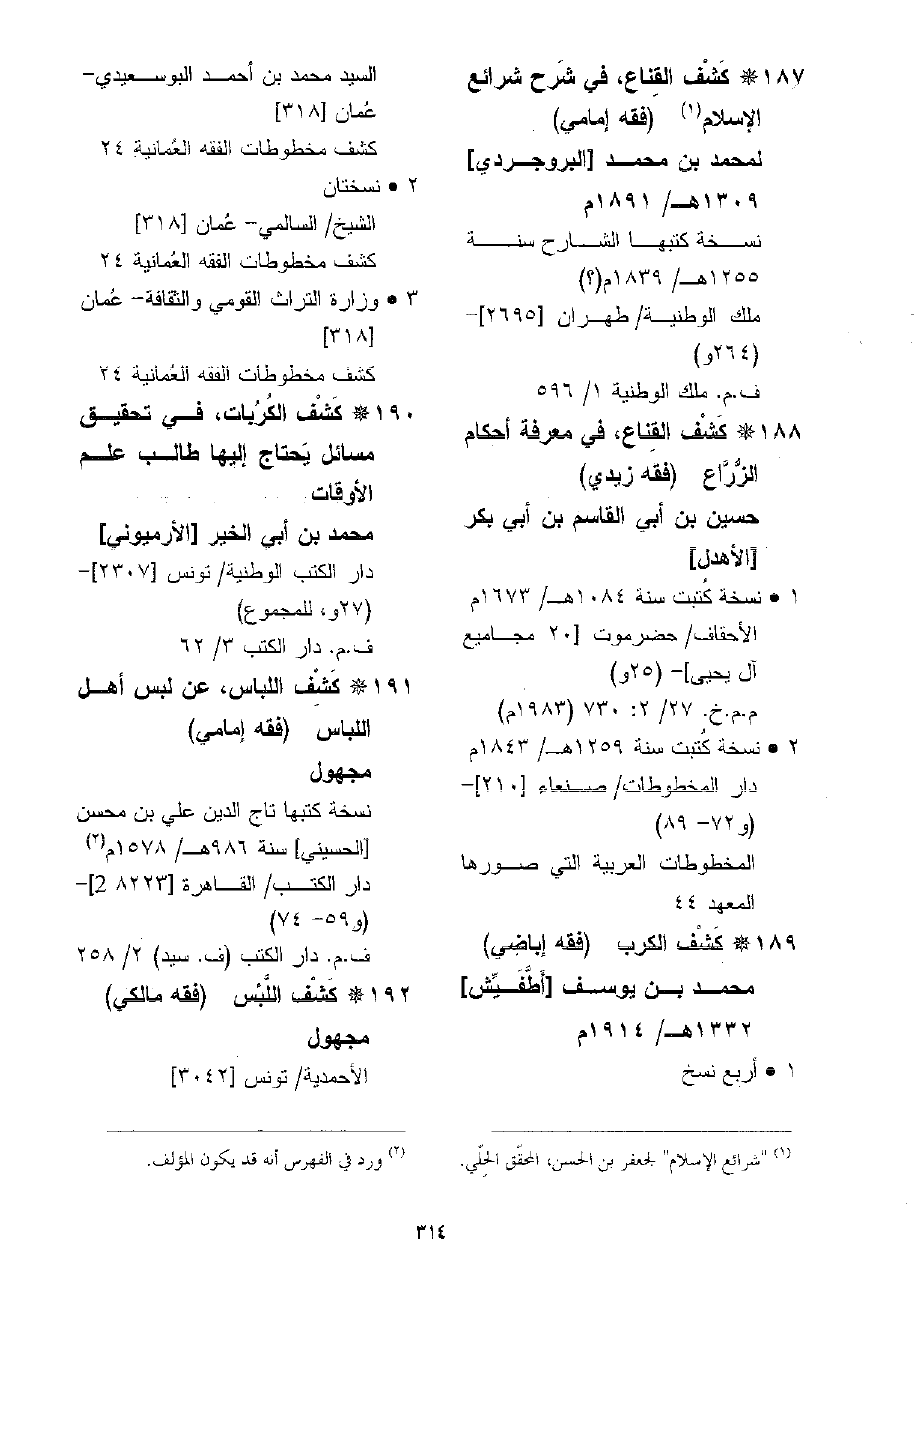 ١٨٧ ❊ كَشْف القِناع، في شَرح شرائع
الإسلام(١) (فقه إمامي)
لمحمد بن محمد [البروجردي]
١٣٠٩هـ/ ١٨٩١م
نسخة كتبها الشارح سنة
١٢٥٥هـ/ ١٨٣٩م(؟)
ملك الوطنية/ طهران [٢٦٩٥]-
(٢٦٤و)
ف.م. ملك الوطنية ١/ ٥٩٦
١٨٨ ❊ كَشْف القِناع، في معرفة أحكام
الزُّرَّاع (فقه زيدي)
حسين بن أبي القاسم بن أبي بكر
[الأهدل]
١ • نسخة كُتبت سنة ١٠٨٤هـ/ ١٦٧٣م
الأحقاف/ حضرموت [٢٠ مجاميع
آل يحيى]- (٢٥و)
م.م.خ. ٢٧/ ٢: ٧٣٠ (١٩٨٣م)
٢ • نسخة كُتبت سنة ١٢٥٩هـ/ ١٨٤٣م
دار المخطوطات/ صنعاء [٢١٠]-
(و٧٢- ٨٩)
المخطوطات العربية التي صورها
المعهد ٤٤
١٨٩ ❊ كَشْف الكرب (فقه إباضي)
محمد بن يوسف [أَطَّفَيِّش]
١٣٣٢هـ/ ١٩١٤م
١ • أربع نسخ
السيد محمد بن أحمد البوسعيدي-
عُمان [٣١٨]
كشف مخطوطات الفقه العُمانية ٢٤
٢ • نسختان
الشيخ/ السالمي- عُمان [٣١٨]
كشف مخطوطات الفقه العُمانية ٢٤
٣ • وزارة التراث القومي والثقافة- عُمان
[٣١٨]
كشف مخطوطات الفقه العُمانية ٢٤
١٩٠ ❊ كَشْف الكُرُبات، في تحقيق
مسائل يَحتاج إليها طالب علم
الأوقات
محمد بن أبي الخير [الأرميوني]
دار الكتب الوطنية/ تونس [٢٣٠٧]-
(٢٧و، للمجموع)
ف.م. دار الكتب ٣/ ٦٢
١٩١ ❊ كَشْف اللِباس، عن لبس أهل
اللباس (فقه إمامي)
مجهول
نسخة كتبها تاج الدين علي بن محسن
[الحسيني] سنة ٩٨٦هـ/ ١٥٧٨م(٢)
دار الكتب/ القاهرة [٨٢٢٣ 2]-
(و٥٩- ٧٤)
ف.م. دار الكتب (ف. سيد) ٢/ ٢٥٨
١٩٢ ❊ كَشْف اللَّبْس (فقه مالكي)
مجهول
الأحمدية/ تونس [٣٠٤٢]
(١) "شرائع الإسلام" لجعفر بن الحسن، المحقّق الحِلّي.
(٢) ورد في الفهرس أنه قد يكون المؤلف.
٣١٤